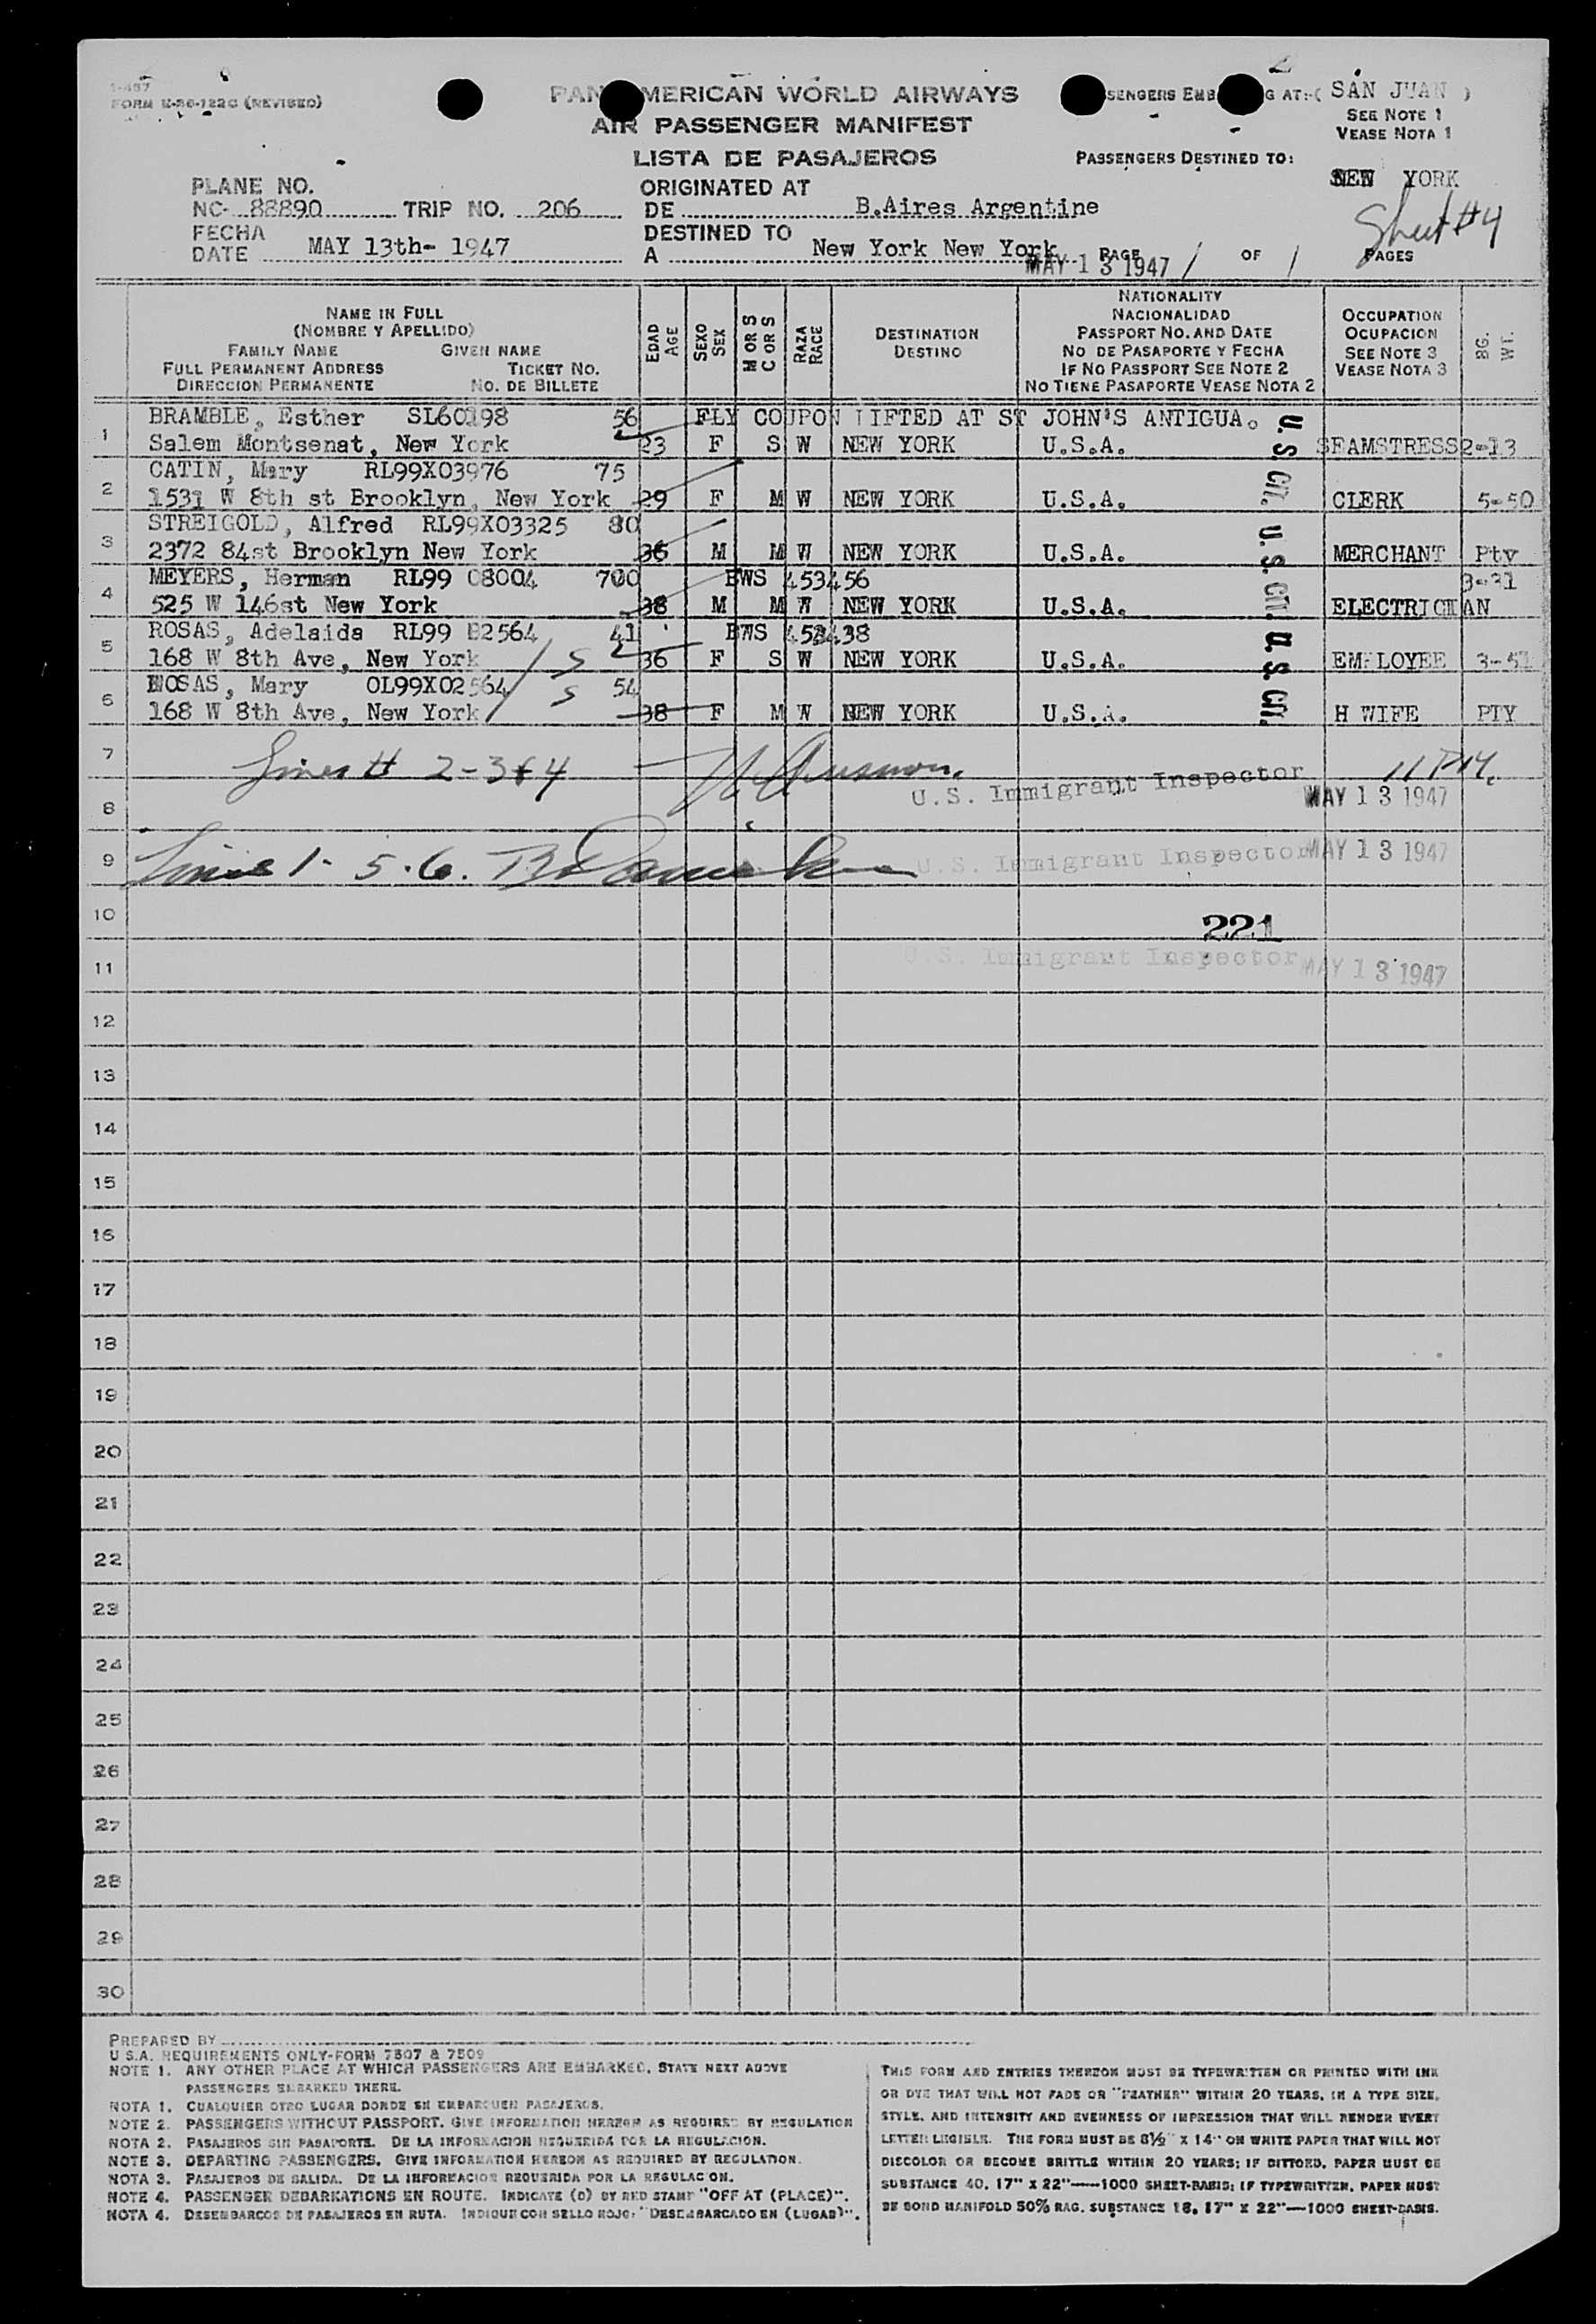 1-457
FORM K-36-122C (REVISED)
PAN AMERICAN WORLD AIRWAYS
AIR PASSENGER MANIFEST
LISTA DE PASAJEROS
SENGERS EMB G AT:-( SAN JUAN )
SEE NOTE 1
VEASE NOTA 1
PASSENGERS DESTINED TO:
NEW YORK
Sheet #4
PLANE NO.
NC- 88890 TRIP NO. 206
FECHA
DATE MAY 13th- 1947
ORIGINATED AT
DE B.Aires Argentine
DESTINED TO
A New York New York
MAY 13 1947
PAGE 1 OF 1 PAGES
NAME IN FULL
(NOMBRE Y APELLIDO)
FAMILY NAME GIVEN NAME
FULL PERMANENT ADDRESS TICKET NO.
DIRECCION PERMANENTE NO. DE BILLETE
EDAD
AGE
SEXO
SEX
M OR S
C OR S
RAZA
RACE
DESTINATION
DESTINO
NATIONALITY
NACIONALIDAD
PASSPORT NO. AND DATE
NO DE PASAPORTE Y FECHA
IF NO PASSPORT SEE NOTE 2
NO TIENE PASAPORTE VEASE NOTA 2
OCCUPATION
OCUPACION
SEE NOTE 3
VEASE NOTA 3
BG.
WT.
1 BRAMBLE, Esther SL60198 56 FLY COUPON LIFTED AT ST JOHN'S ANTIGUA.
Salem Montsenat, New York 23 F S W NEW YORK U.S.A. SEAMSTRESS 2-13
2 CATIN, Mary RL99X03976 75
1531 W 8th st Brooklyn, New York 29 F M W NEW YORK U.S.A. CLERK 5-50
3 STREIGOLD, Alfred RL99X03325 80
2372 84st Brooklyn New York 36 M M W NEW YORK U.S.A. MERCHANT Pty
4 MEYERS, Herman RL99 08004 700 BWS 453456 3-31
525 W 146st New York 38 M M W NEW YORK U.S.A. ELECTRICIAN
5 ROSAS, Adelaida RL99 82564 41 BWS
168 W 8th Ave, New York S 36 F S W NEW YORK U.S.A. EMPLOYEE 3-51
6 ROSAS, Mary OL99X02564 S 54
168 W 8th Ave, New York 38 F M W NEW YORK U.S.A. H WIFE PTY
U.S. CIT. U.S. CIT. U.S. CIT.
7 Lines # 2-3+4 11 PM.
8 U.S. Immigrant Inspector MAY 13 1947
9 Lines 1- 5.6. U.S. Immigrant Inspector MAY 13 1947
10 221
11 U.S. Immigrant Inspector MAY 13 1947
12
13
14
15
16
17
18
19
20
21
22
23
24
25
26
27
28
29
30
PREPARED BY
U.S.A. REQUIREMENTS ONLY-FORM 7507 & 7509
NOTE 1. ANY OTHER PLACE AT WHICH PASSENGERS ARE EMBARKED, STATE NEXT ABOVE
PASSENGERS EMBARKED THERE.
NOTA 1. CUALQUIER OTRO LUGAR DONDE SE EMBARQUEN PASAJEROS.
NOTE 2. PASSENGERS WITHOUT PASSPORT. GIVE INFORMATION HEREON AS REQUIRED BY REGULATION
NOTA 2. PASAJEROS SIN PASAPORTE. DE LA INFORMACION REQUERIDA POR LA REGULACION.
NOTE 3. DEPARTING PASSENGERS. GIVE INFORMATION HEREON AS REQUIRED BY REGULATION.
NOTA 3. PASAJEROS DE SALIDA. DE LA INFORMACION REQUERIDA POR LA REGULACION.
NOTE 4. PASSENGER DEBARKATIONS EN ROUTE. INDICATE (D) BY RED STAMP "OFF AT (PLACE)".
NOTA 4. DESEMBARCOS DE PASAJEROS EN RUTA. INDIQUE CON SELLO ROJO: "DESEMBARCADO EN (LUGAR)".
THIS FORM AND ENTRIES THEREON MUST BE TYPEWRITTEN OR PRINTED WITH INK
OR DYE THAT WILL NOT FADE OR "FEATHER" WITHIN 20 YEARS, IN A TYPE SIZE,
STYLE, AND INTENSITY AND EVENNESS OF IMPRESSION THAT WILL RENDER EVERY
LETTER LEGIBLE. THE FORM MUST BE 8½" X 14" ON WHITE PAPER THAT WILL NOT
DISCOLOR OR BECOME BRITTLE WITHIN 20 YEARS; IF DITTOED, PAPER MUST BE
SUBSTANCE 40, 17" X 22"—1000 SHEET-BASIS; IF TYPEWRITTEN, PAPER MUST
BE BOND MANIFOLD 50% RAG. SUBSTANCE 18, 17" X 22"—1000 SHEET-BASIS.